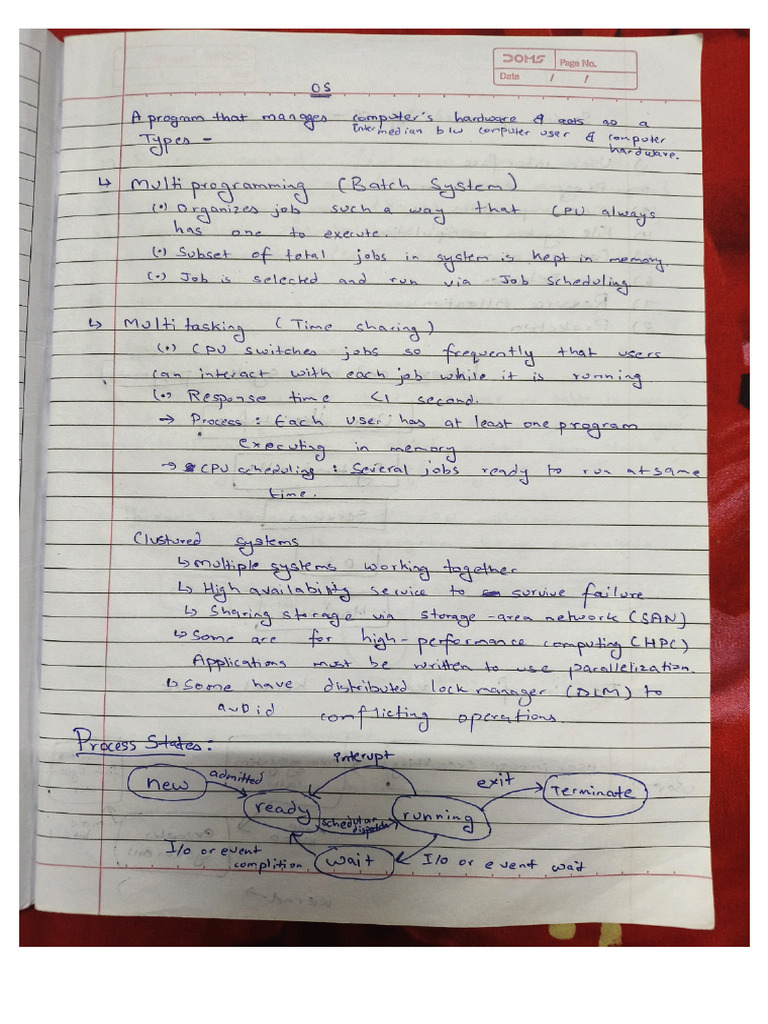 DOMS
Page No.
Date / /
OS
A program that manages computer's hardware & acts as a
intermedian b/w computer user & computer
hardware.
Types -
↳ Multi programming (Batch System)
(•) Organizes job such a way that CPU always
has one to execute.
(•) Subset of total jobs in system is kept in memory
(•) Job is selected and run via Job scheduling.
↳ Multi tasking (Time sharing)
(•) CPU switches jobs so frequently that users
can interact with each job while it is running
(•) Response time <1 second.
→ Process : Each user has at least one program
executing in memory
→ CPU scheduling : Several jobs ready to run at same
time.
Clustured systems
↳ Multiple systems working together
↳ High availability service to survive failure
↳ Sharing storage via storage-area network (SAN)
↳ Some are for high-performance computing (HPC)
Applications must be written to use parallelization.
↳ Some have distributed lock manager (DLM) to
avoid conflicting operations.
Process States :
interupt
new
admitted
exit
Terminate
ready
schedular
dispatch
running
I/o or event
complition
wait
I/o or event wait